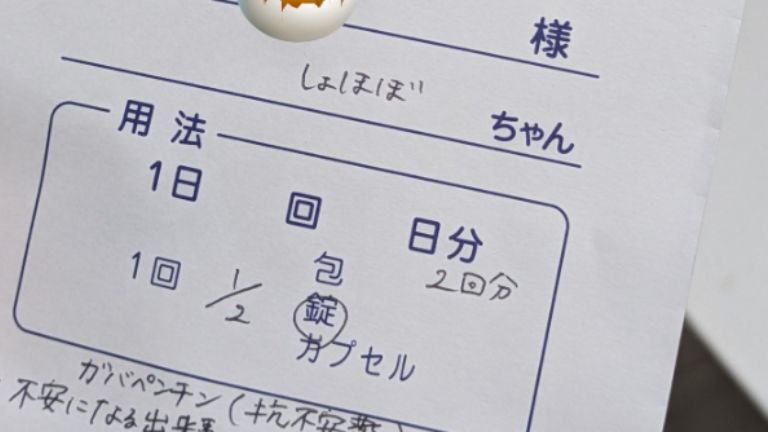 様
しょほほ゛ ちゃん
用法
1日 回 日分
1回 1/2 包 錠 カプセル 2回分
ガバペンチン(抗不安薬)
不安になる出来事